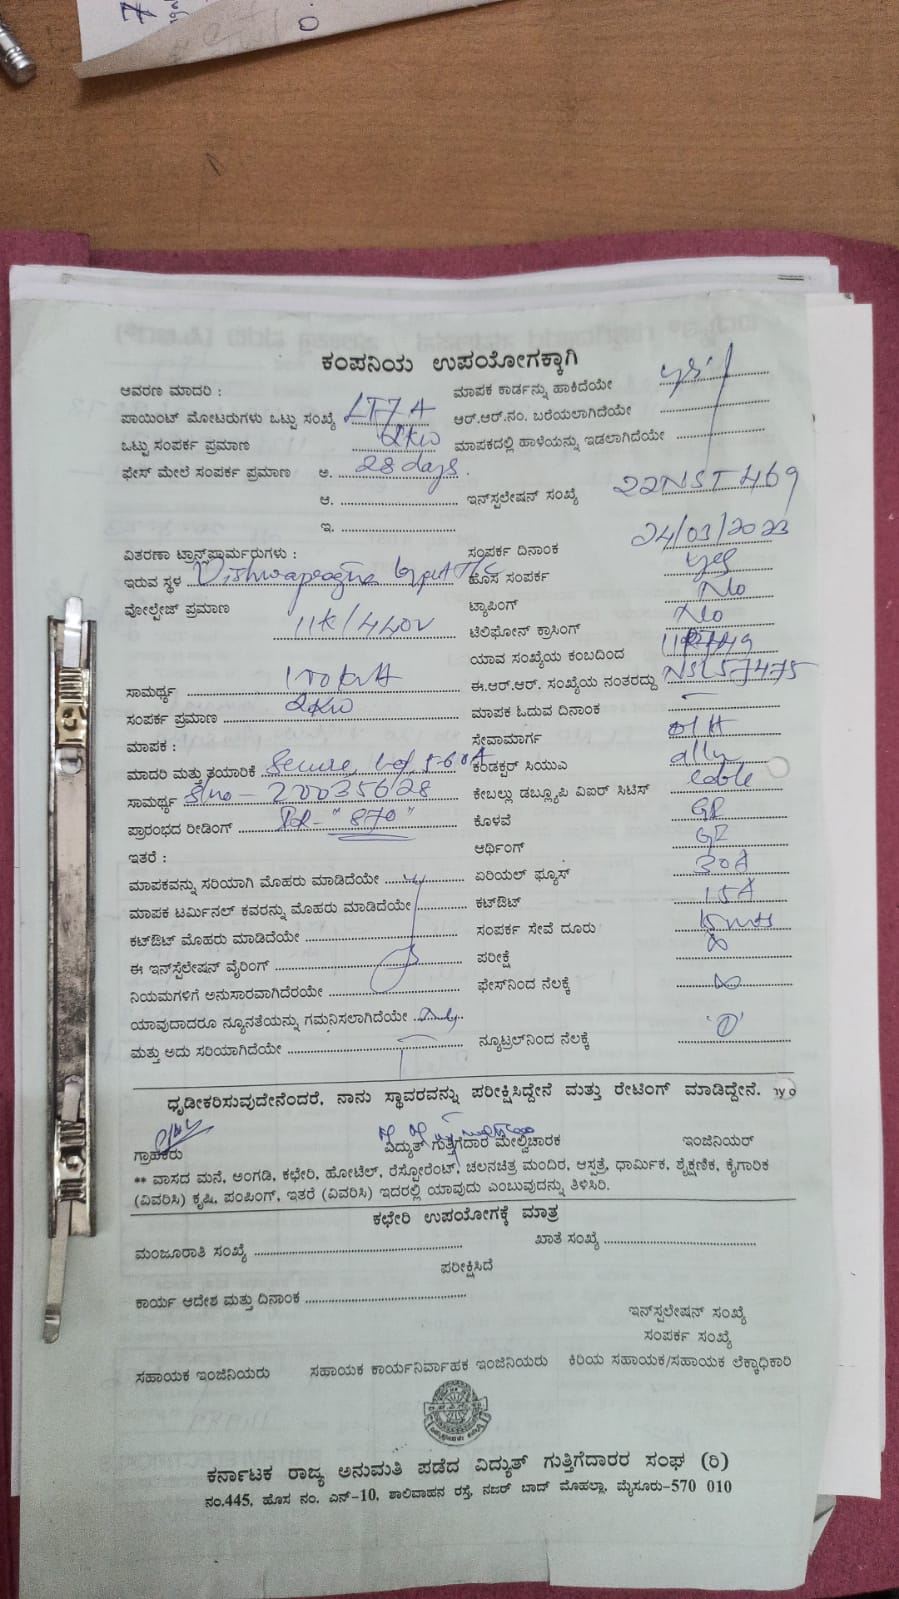 ಕಂಪನಿಯ ಉಪಯೋಗಕ್ಕಾಗಿ
ಆವರಣ ಮಾದರಿ :
ಮಾಪಕ ಕಾರ್ಡನ್ನು ಹಾಕಿದೆಯೇ yes
ಪಾಯಿಂಟ್ ಮೋಟರುಗಳು ಒಟ್ಟು ಸಂಖ್ಯೆ LT7A
ಆರ್.ಆರ್.ನಂ. ಬರೆಯಲಾಗಿದೆಯೇ
ಒಟ್ಟು ಸಂಪರ್ಕ ಪ್ರಮಾಣ 2KW
ಮಾಪಕದಲ್ಲಿ ಹಾಳೆಯನ್ನು ಇಡಲಾಗಿದೆಯೇ
ಫೇಸ್ ಮೇಲೆ ಸಂಪರ್ಕ ಪ್ರಮಾಣ ಅ. 28 days.
ಆ.
ಇನ್‌ಸ್ಟಲೇಷನ್ ಸಂಖ್ಯೆ 22NST469
ಇ.
ವಿತರಣಾ ಟ್ರಾನ್ಸ್‌ಫಾರ್ಮರುಗಳು :
ಸಂಪರ್ಕ ದಿನಾಂಕ 24/03/2023
ಇರುವ ಸ್ಥಳ
ಹೊಸ ಸಂಪರ್ಕ yes
ವೋಲ್ಟೇಜ್ ಪ್ರಮಾಣ 11K/440V
ಟ್ಯಾಪಿಂಗ್ No
ಟೆಲಿಫೋನ್ ಕ್ರಾಸಿಂಗ್ No
ಯಾವ ಸಂಖ್ಯೆಯ ಕಂಬದಿಂದ
ಸಾಮರ್ಥ್ಯ
ಈ.ಆರ್.ಆರ್. ಸಂಖ್ಯೆಯ ನಂತರದ್ದು NSL57475
ಸಂಪರ್ಕ ಪ್ರಮಾಣ 2KW
ಮಾಪಕ ಓದುವ ದಿನಾಂಕ
ಮಾಪಕ :
ಸೇವಾಮಾರ್ಗ OH
ಮಾದರಿ ಮತ್ತು ತಯಾರಿಕೆ Secure, 5-60A
ಕಂಡಕ್ಟರ್ ಸಿಯುಎ
ಸಾಮರ್ಥ್ಯ S/no - 20035628
ಕೇಬಲ್ಲು ಡಬ್ಲ್ಯೂಪಿ ವಿಐಆರ್ ಸಿಟಿಸ್ cable
ಪ್ರಾರಂಭದ ರೀಡಿಂಗ್ "870"
ಕೊಳವೆ GI
ಇತರೆ :
ಆರ್ಥಿಂಗ್ GI
ಮಾಪಕವನ್ನು ಸರಿಯಾಗಿ ಮೊಹರು ಮಾಡಿದೆಯೇ
ಏರಿಯಲ್ ಫ್ಯೂಸ್ 30A
ಮಾಪಕ ಟರ್ಮಿನಲ್ ಕವರನ್ನು ಮೊಹರು ಮಾಡಿದೆಯೇ
ಕಟ್‌ಔಟ್ 15A
ಕಟ್‌ಔಟ್ ಮೊಹರು ಮಾಡಿದೆಯೇ
ಸಂಪರ್ಕ ಸೇವೆ ದೂರು 15mts
ಈ ಇನ್‌ಸ್ಟೆಲೇಷನ್ ವೈರಿಂಗ್
ಪರೀಕ್ಷೆ ∞
ನಿಯಮಗಳಿಗೆ ಅನುಸಾರವಾಗಿದೆರಯೇ
ಫೇಸ್‌ನಿಂದ ನೆಲಕ್ಕೆ ∞
ಯಾವುದಾದರೂ ನ್ಯೂನತೆಯನ್ನು ಗಮನಿಸಲಾಗಿದೆಯೇ
ಮತ್ತು ಅದು ಸರಿಯಾಗಿದೆಯೇ
ನ್ಯೂಟ್ರಲ್‌ನಿಂದ ನೆಲಕ್ಕೆ '0'
ಧೃಡೀಕರಿಸುವುದೇನೆಂದರೆ, ನಾನು ಸ್ಥಾವರವನ್ನು ಪರೀಕ್ಷಿಸಿದ್ದೇನೆ ಮತ್ತು ರೇಟಿಂಗ್ ಮಾಡಿದ್ದೇನೆ.
ಗ್ರಾಹಕರು ವಿದ್ಯುತ್ ಗುತ್ತಿಗೆದಾರ ಮೇಲ್ವಿಚಾರಕ ಇಂಜಿನಿಯರ್
** ವಾಸದ ಮನೆ, ಅಂಗಡಿ, ಕಛೇರಿ, ಹೋಟೆಲ್, ರೆಸ್ಟೋರೆಂಟ್, ಚಲನಚಿತ್ರ ಮಂದಿರ, ಆಸ್ಪತ್ರೆ, ಧಾರ್ಮಿಕ, ಶೈಕ್ಷಣಿಕ, ಕೈಗಾರಿಕ
(ವಿವರಿಸಿ) ಕೃಷಿ, ಪಂಪಿಂಗ್, ಇತರೆ (ವಿವರಿಸಿ) ಇದರಲ್ಲಿ ಯಾವುದು ಎಂಬುವುದನ್ನು ತಿಳಿಸಿರಿ.
ಕಛೇರಿ ಉಪಯೋಗಕ್ಕೆ ಮಾತ್ರ
ಮಂಜೂರಾತಿ ಸಂಖ್ಯೆ
ಖಾತೆ ಸಂಖ್ಯೆ
ಪರೀಕ್ಷಿಸಿದೆ
ಕಾರ್ಯ ಆದೇಶ ಮತ್ತು ದಿನಾಂಕ
ಇನ್‌ಸ್ಟಲೇಷನ್ ಸಂಖ್ಯೆ
ಸಂಪರ್ಕ ಸಂಖ್ಯೆ
ಸಹಾಯಕ ಇಂಜಿನಿಯರು ಸಹಾಯಕ ಕಾರ್ಯನಿರ್ವಾಹಕ ಇಂಜಿನಿಯರು ಕಿರಿಯ ಸಹಾಯಕ/ಸಹಾಯಕ ಲೆಕ್ಕಾಧಿಕಾರಿ
ಕರ್ನಾಟಕ ರಾಜ್ಯ ಅನುಮತಿ ಪಡೆದ ವಿದ್ಯುತ್ ಗುತ್ತಿಗೆದಾರರ ಸಂಘ (ರಿ)
ನಂ.445, ಹೊಸ ನಂ. ಎನ್-10, ಶಾಲಿವಾಹನ ರಸ್ತೆ, ನಜರ್ ಬಾದ್ ಮೊಹಲ್ಲಾ, ಮೈಸೂರು-570 010